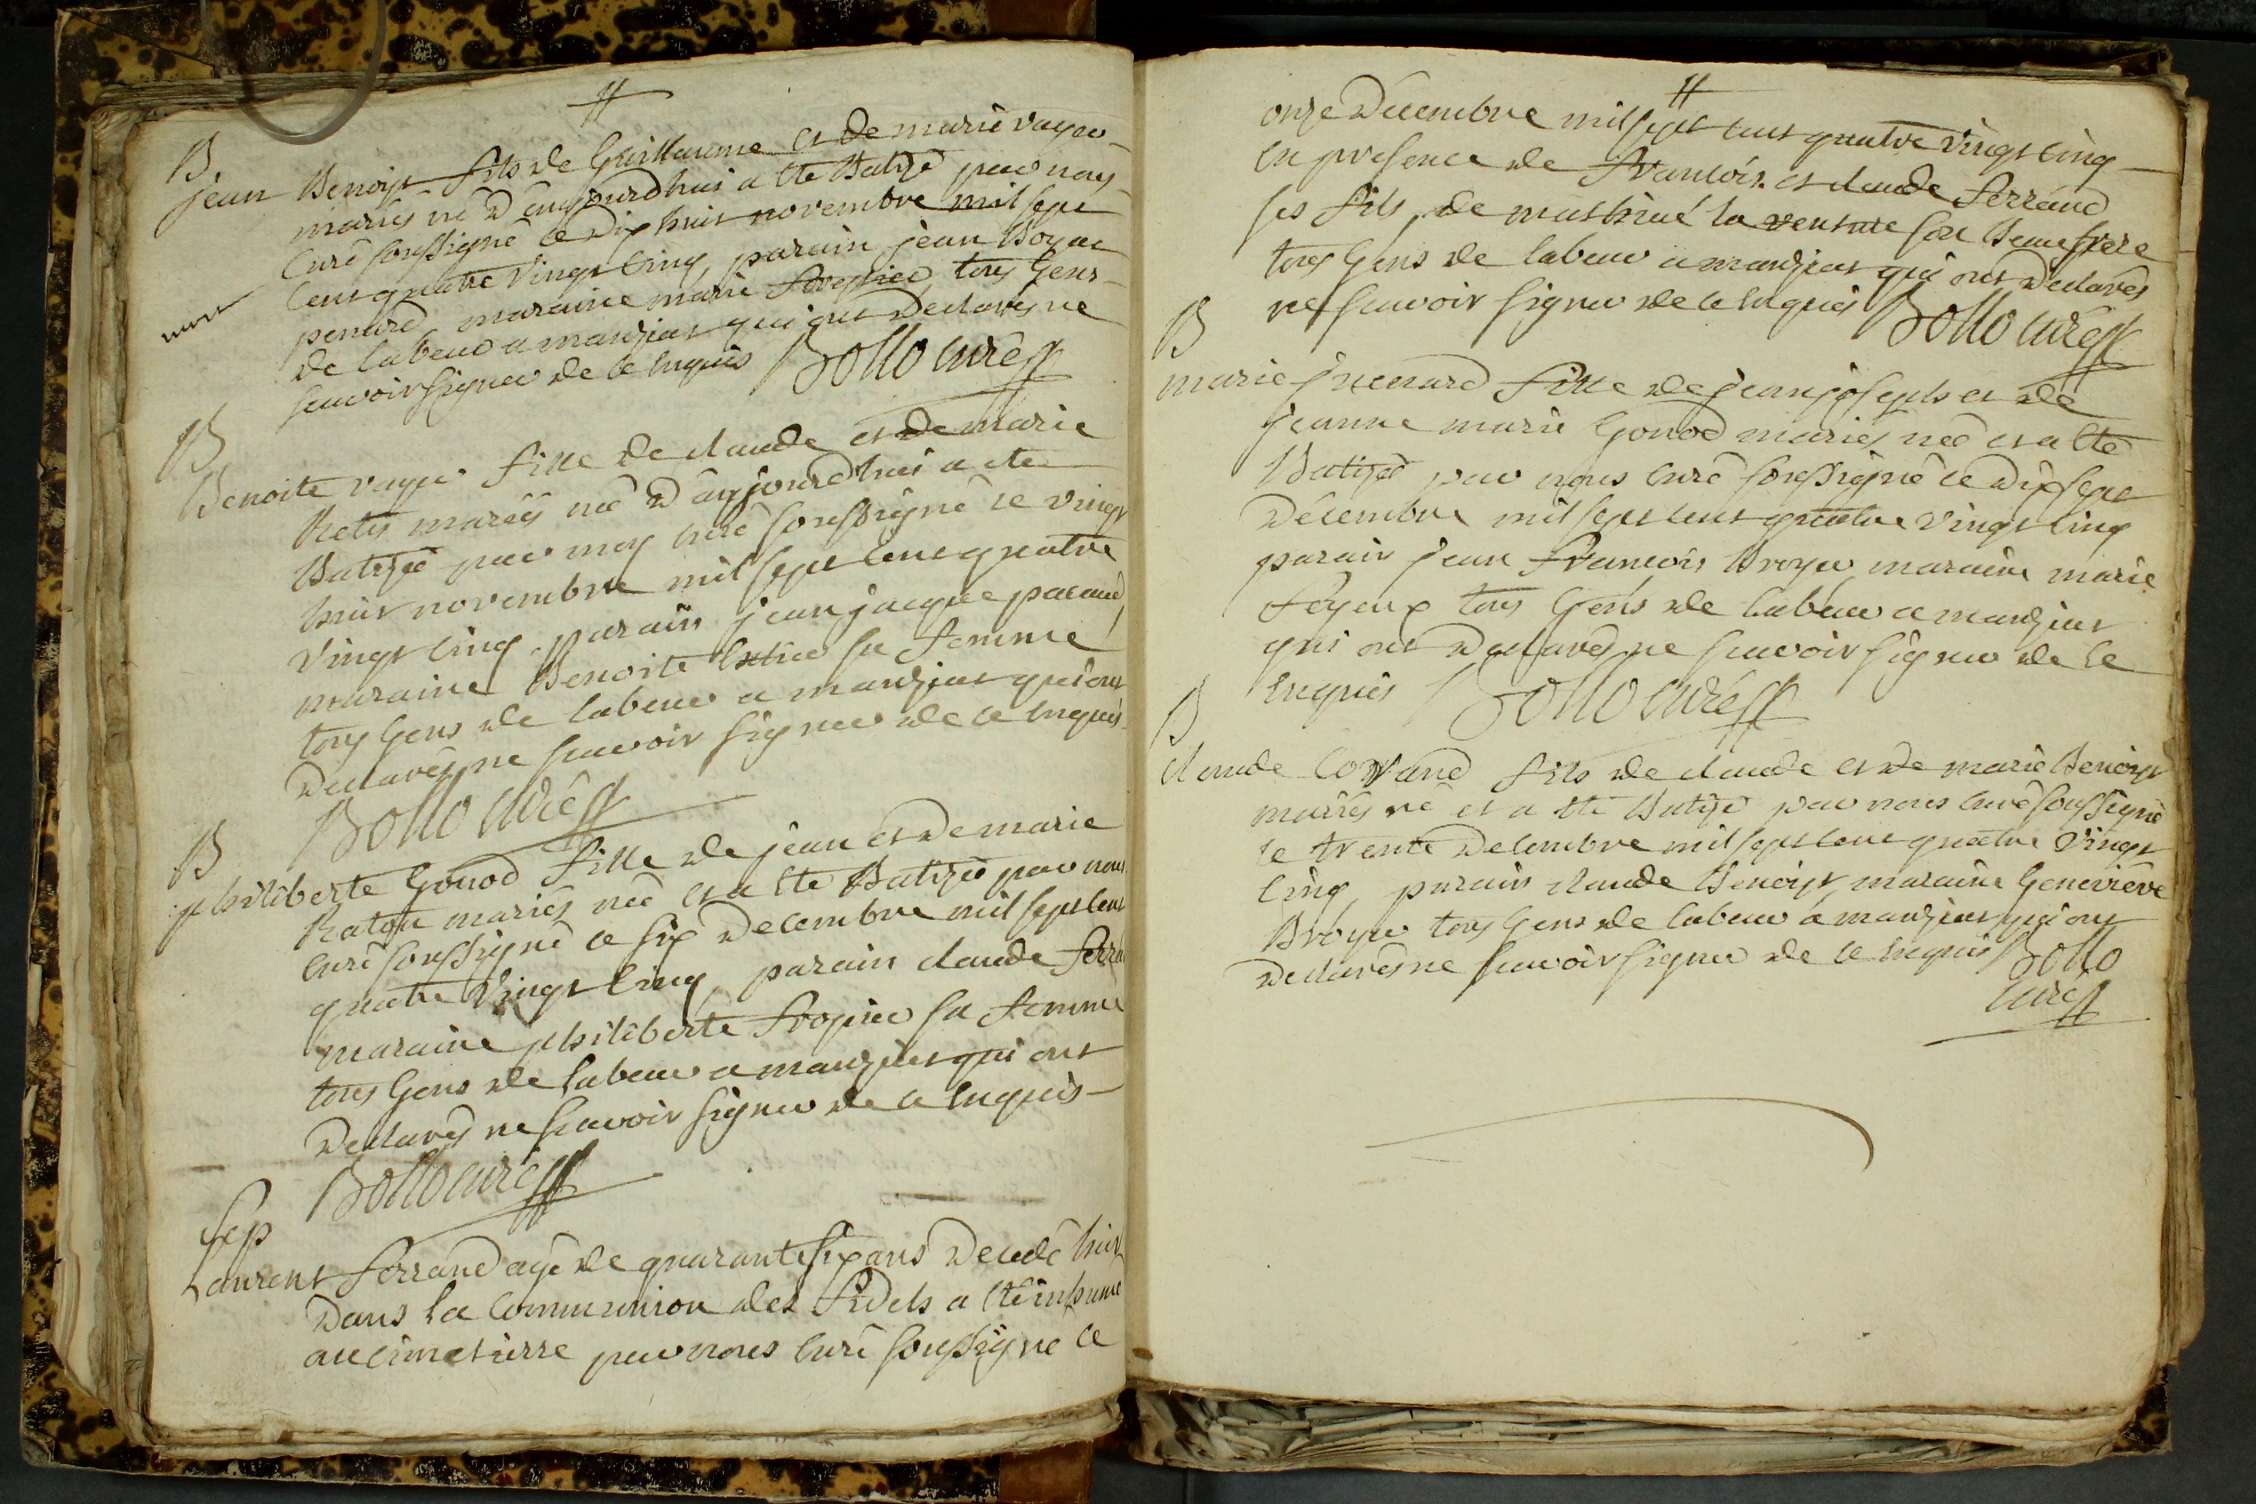 B
jean Benoist fils de Guillaume et de marie vayer
mariés né d'aujourdhui a ete Batizé par nous
Curé soussigné ce dix huit novembre mil sept
mort
cent quatre vingt cinq, parain jean Boyer
penard maraine marie tous Gens
de labeur a manziat qui ont declarés ne
scavoir signer de ce enquis Bollo curé
B
Benoite vayer fille de claude et de marie
Retis mariés née d'aujourdhui a ete
Batizée par moy curé soussigné ce vingt
huit novembre mil sept cent quatre
vingt cinq parain jean jacque pacaud,
maraine Benoite sa femme
tous Gens de labeur a manziat qui ont
declarés ne scavoir signer de ce enquis
Bollo curé
B
philiberte Gonod fille de jean et de marie
Raton mariés née et a ete Batizée par nous
curé soussigné ce six decembre mil sept cent
quatre vingt cinq parain claude ferra
maraine philiberte fropier sa femme
tous Gens de labeur a manziat qui ont
declarés ne scavoir signer de ce enquis
Bollo curé
Sep
Laurent ferrand agé de quarante six ans decedé hier
dans la communion des fidels a ete inhumé
au cimetierre par nous curé soussigné ce
onze decembre mil sept cent quatre vingt cinq
en presence de francois et claude ferrand
ses fils, de mathieu la venture son beau frere
tous Gens de labeur a manziat qui ont declarés
ne scavoir signer de ce enquis Bollo curé
B
marie penard fille de jean joseph et de
jeanne marie Gonod mariés née et a ete
Batizée par nous curé soussigné ce dix sept
decembre mil sept cent quatre vingt cinq
parain jean francois Broyer maraine marie
feyeux tous Gens de labeur a manziat
qui ont declarés ne scavoir signer de ce
enquis Bollo curé
B
claude Corrand fils de claude et de marie Benoist
mariés né et a ete Batizé par nous curé soussigné
le trente decembre mil sept cent quatre vingt
cinq, parain claude Benoist maraine Genevieve
Broyer tous Gens de labeur a manziat qui ont
declarés ne scavoir signer de ce enquis Bollo
curé